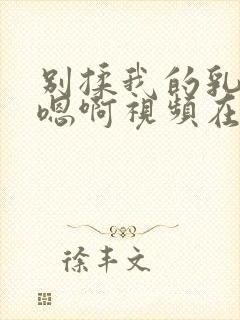 别揉我的乳
嗯啊視頻在
徐丰文